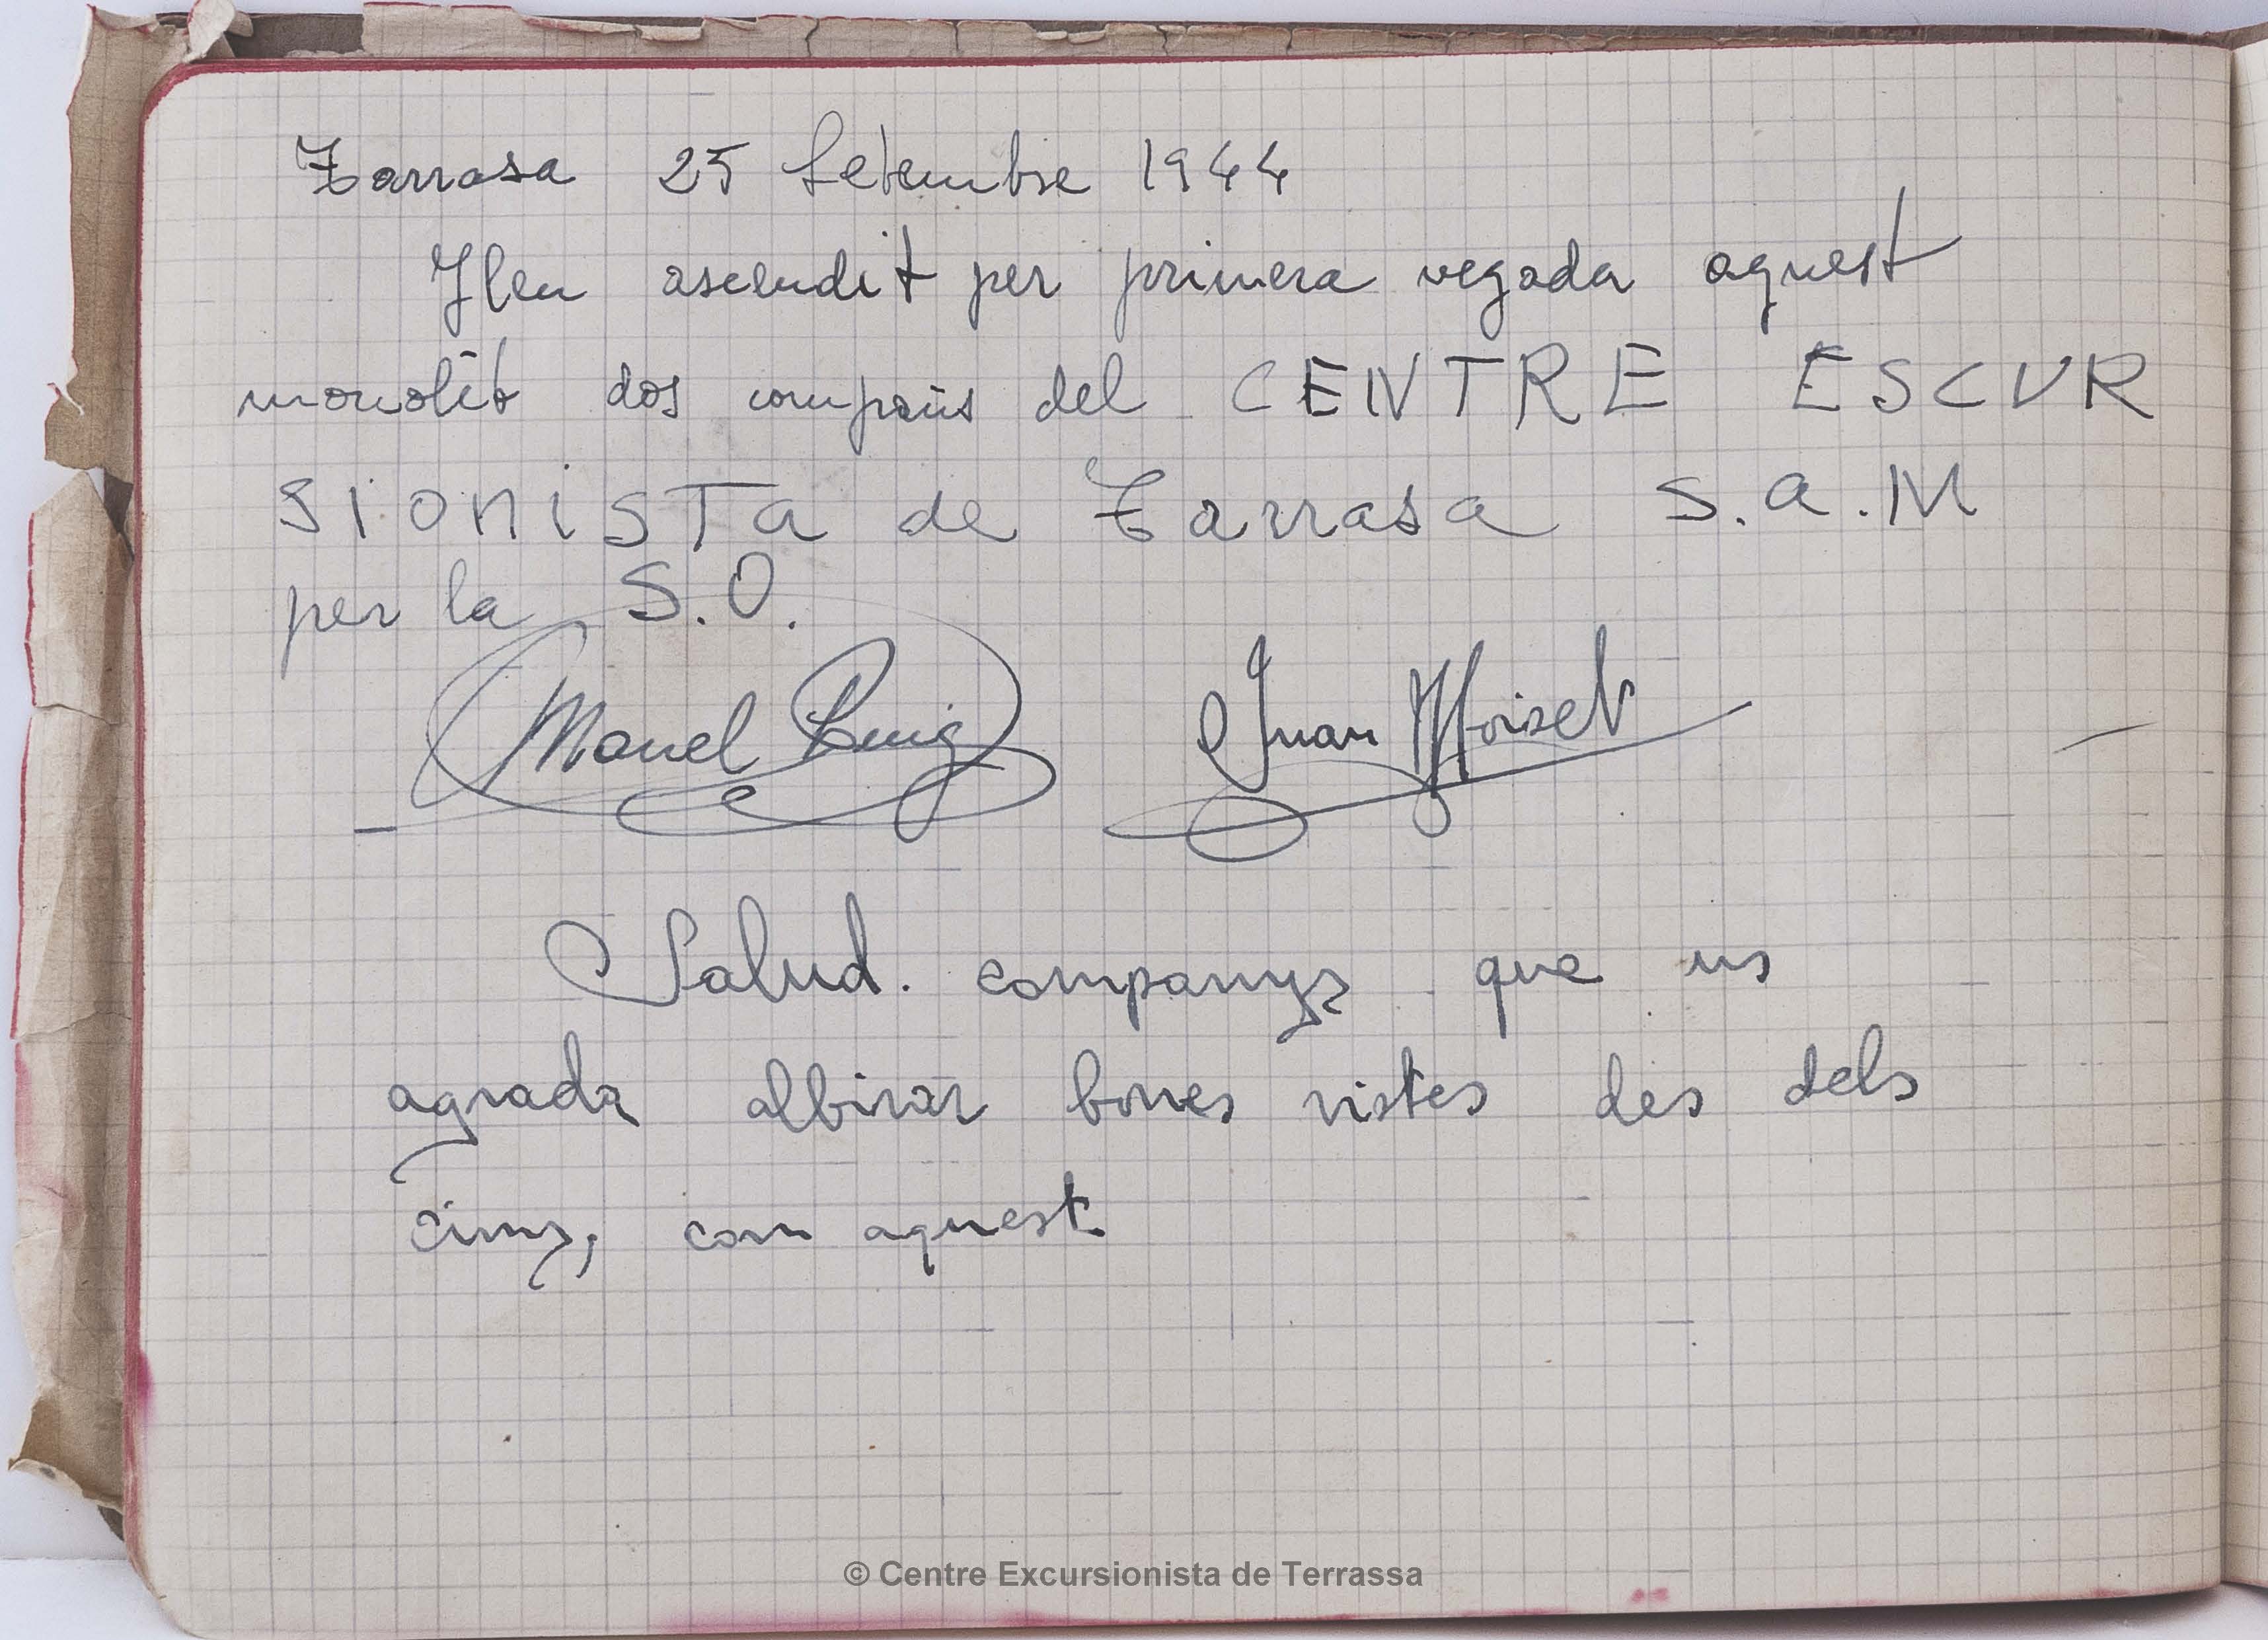 Tarrasa 25 Setembre 1944
Hem ascendit per primera vegada aquest
monolit dos companys del CENTRE ESCUR
SIONISTA de Tarrasa S.A.M
per la S.O.
Manel Puig Juan
Salud. companys que us
agrada albirar bones vistes des dels
cims, com aquest
© Centre Excursionista de Terrassa